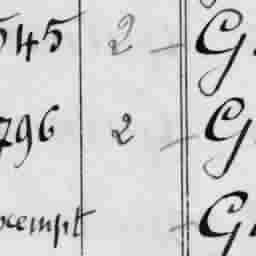 545 2 – G.
796 2 – G
exempt – G